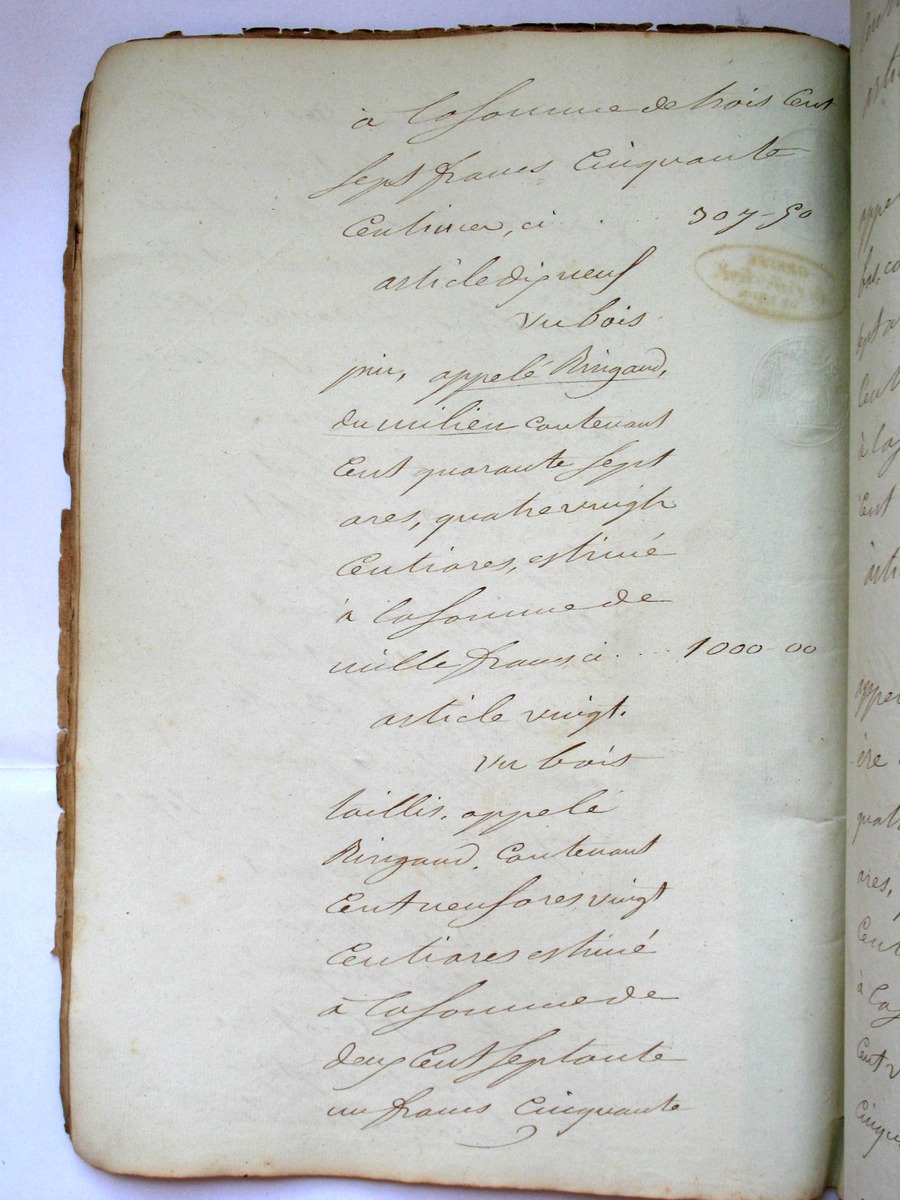 à la somme de trois Cent
sept francs Cinquante
Centimes, ci . . . . 307-50
article dix neuf
un bois
pin, appelé Ringaud,
du milieu contenant
Cent quarante sept
ares, quatre vingts
Centiares, estimé
à la somme de
mille francs, ci . . . 1000-00
article vingt.
un bois
taillis, appelé
Ringaud, Contenant
Cent neuf ares vingt
Centiares estimé
à la somme de
deux Cent septante
un francs Cinquante